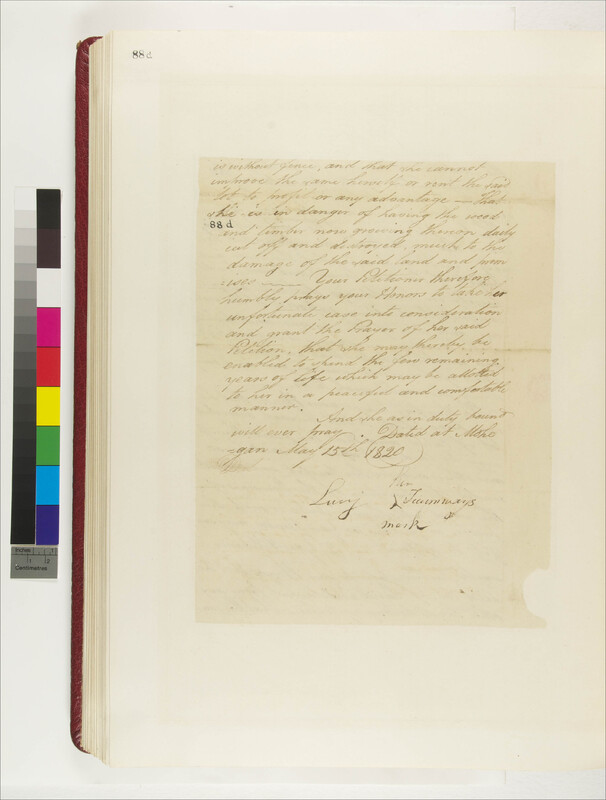 88d
is without fence, and that she cannot
improve the same herself or rent the said
lot to profit or any advantage — that
she is in danger of having the wood
88.d
and timber now growing thereon daily
cut off and destroyed, much to the
damage of the said land and prem
ises — Your Petitioner therefore
humbly prays your Honors to take her
unfortunate case into consideration
and grant the Prayer of her said
Petition, that she may thereby be
enabled to spend the few remaining
years of life which may be allotted
to her in a peaceful and comfortable
manner.
And she as in duty bound
will ever pray. Dated at Mohe
-gan May 15th 1820
her
Lucy X Teecomways
mark
Inches 1
1 2
Centimetres